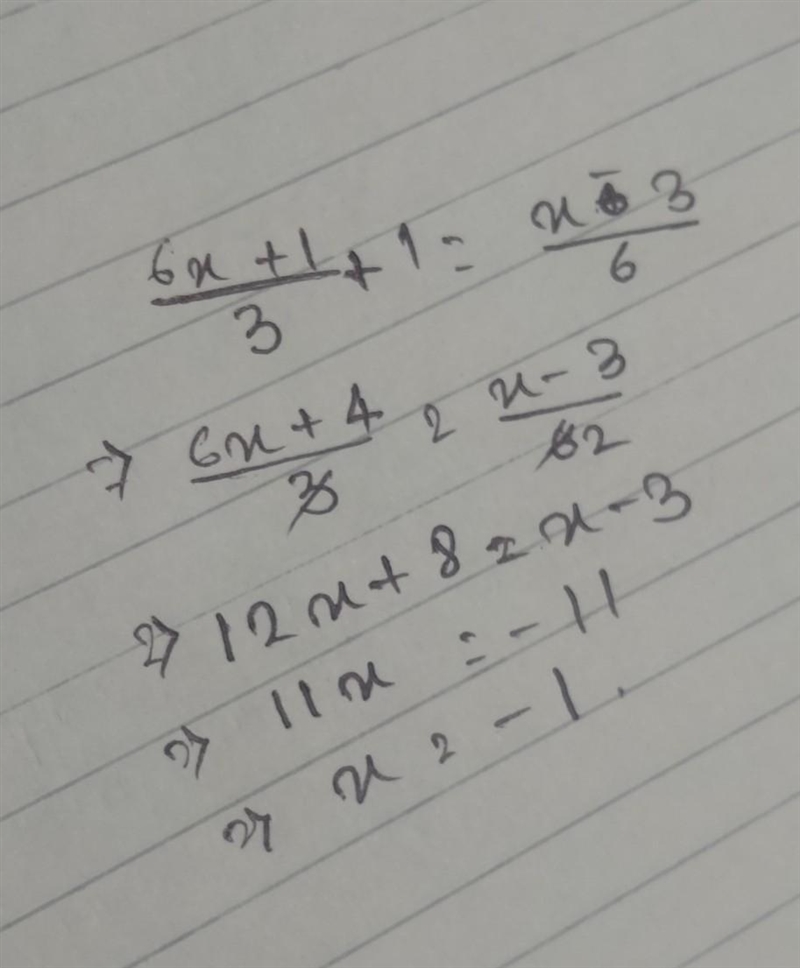 (6x + 1)/3 + 1 = (x - 3)/6
⇒ (6x + 4)/3 = (x - 3)/62
⇒ 12x + 8 = x - 3
⇒ 11x = -11
⇒ x = -1.